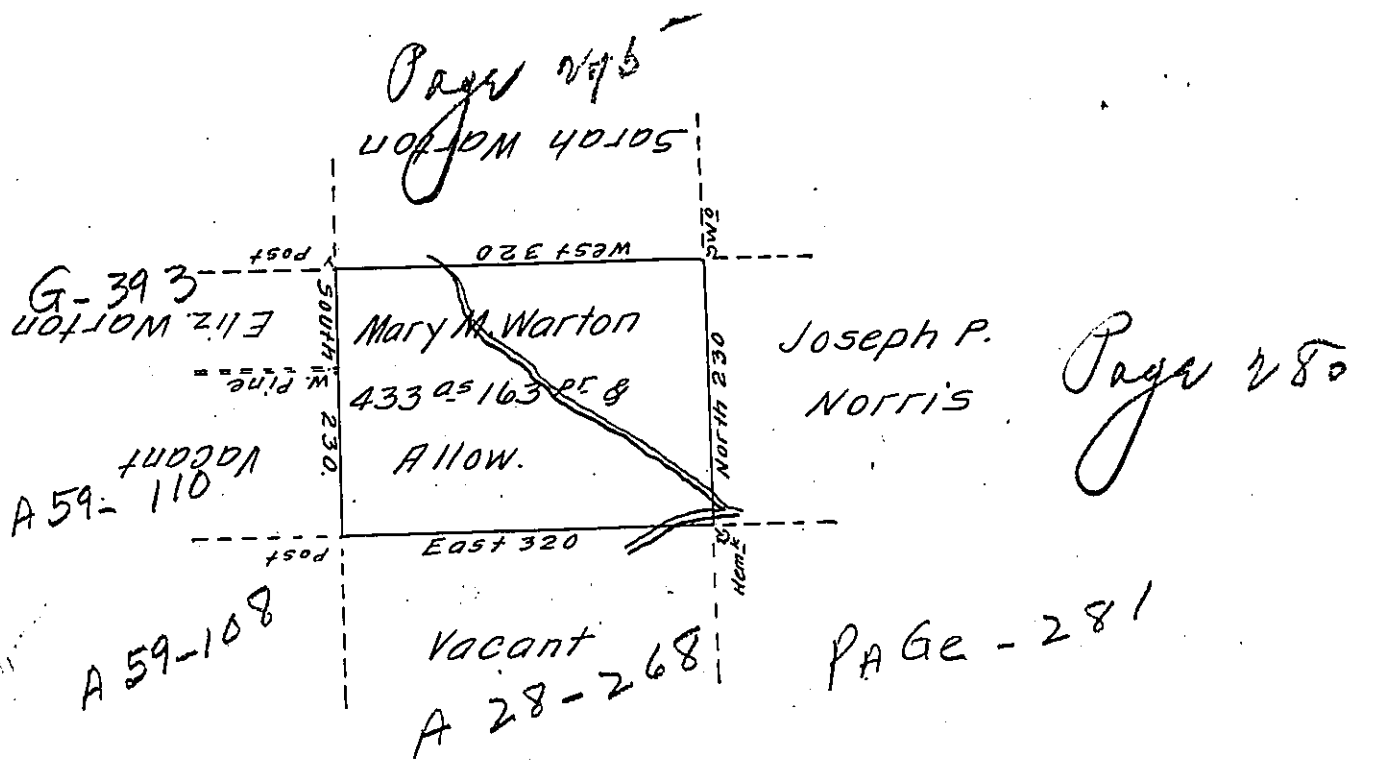 Page
Sarah Warton
West 320
Post
G-393
Eliz. Warton
South 230.
W. Pine
Mary M. Warton
433 as 163 pr &
Allow.
North 230
Joseph P.
Norris
Page 280
Vacant
A 59-110
Post
East 320
Hemk
A 59-108
Vacant
A 28-268
PAGe - 281